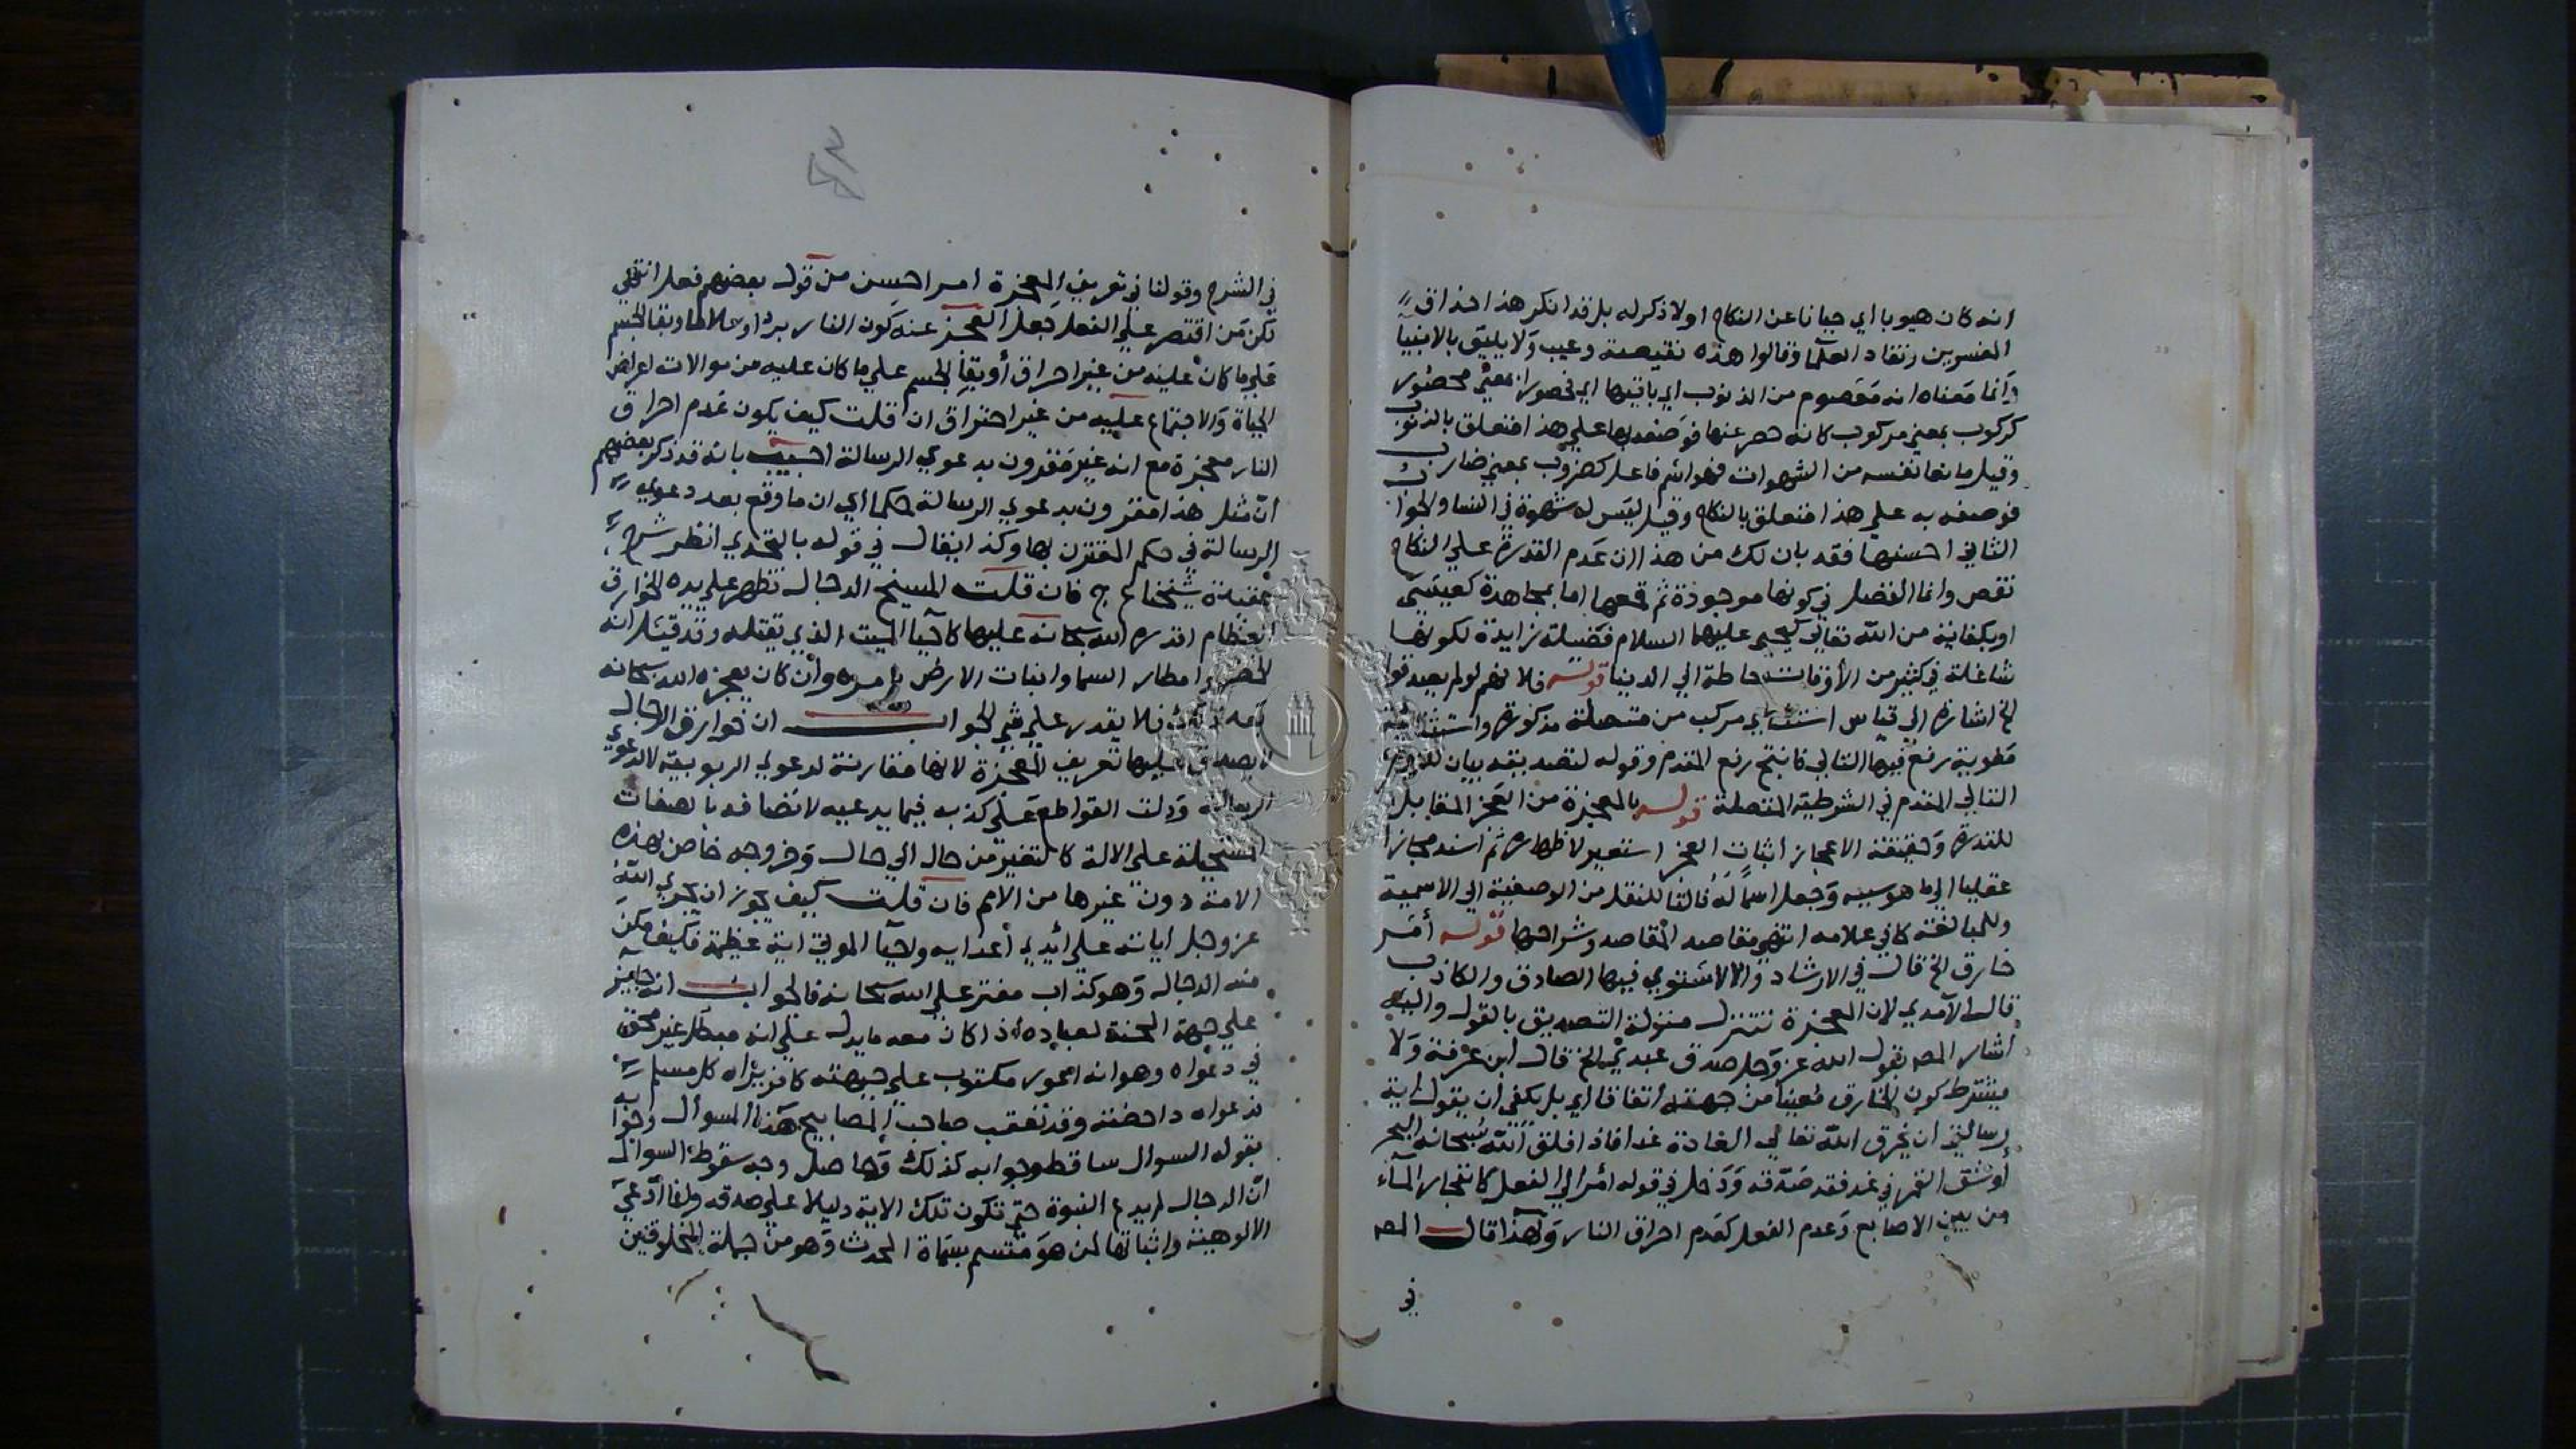 انه كان هيوبا اي جبانا عن النكاح او لا ذكر له بل قد انكر هذا حذاق
المفسرين ونقاد العلما وقالوا هذه نقيصة وعيب ولا يليق بالانبيا
وانما معناه انه معصوم من الذنوب اي ياتيها اي فحصور بمعني محصور
كركوب بمعني مركوب كانه حصر عنها فوصفه بها علي هذا متعلق بالذنوب
وقيل مانعا نفسه من الشهوات فهو اسم فاعل كضروب بمعني ضارب
فوصفه به علي هذا متعلق بالنكاح وقيل ليس له شهوة في النسا والجواب
الثاني احسنها فقد بان لك من هذا ان عدم القدرة علي النكاح
نقص وانما الفضل في كونها موجودة ثم قمعها اما بمجاهدة كعيسي
او بكفاية من الله تعالي كيحيي عليهما السلام فضيلة زايدة لكونها
شاغلة في كثير من الأوقات حاطة الي الدنيا قوله فلانهم لو لم يصدقوا
الخ اشارة الي قياس استثنائي مركب من متصلة مذكورة واستثنائية
مطوية رفع فيها التالي فانتج رفع المقدم وقوله لتصديقه بيان للزوم
التالي المقدم في الشرطية المتصلة قوله بالمعجزة من العجز المقابل
للقدرة وحقيقة الاعجاز اثبات العجز استعير لاظهاره ثم اسند مجازا
عقليا الي ما هو سببه وجعل اسما له فالتا للنقل من الوصفية الي الاسمية
وللمبالغة كما في علامه انتهي مقاصد المقاصد وشراحها قوله أمر
خارق الخ قال في الارشاد والا لاستوي فيها الصادق والكاذب
قال الآمدي لان المعجزة تتنزل منزلة التصديق بالقول واليه
اشار المص بقول الله عز وجل صدق عبدي الخ قال ابن عرفة ولا
يشترط كون الخارق معينا من جهته اتفاقا اي بل يكفي ان يقول اية
رسالتي ان يخرق الله تعالي العادة غدا فاذا فلق الله سبحانه البحر
أو شق القمر في غد فقد صدقه ودخل في قوله أمر الي الفعل كانفجار المآء
من بين الاصابع وعدم الفعل كعدم احراق النار ولهذا قال المص
في
في الشرح وقولنا في تعريف المعجزة امر احسن من قول بعضهم فعل انتهي
لكن من اقتصر علي الفعل جعل المعجز عنه كون النار بردا وسلاما وبقا الجسم
علي ما كان عليه من غير احراق أو بقا الجسم علي ما كان عليه من موالات اعراض
الحياة والاجتماع عليه من غير احتراق ان قلت كيف يكون عدم احراق
النار معجزة مع انه غير مقرون بدعوي الرسالة اجيب بانه قد ذكر بعضهم
أن مثل هذا مقرون بدعوي الرسالة حكما اي ان ما وقع بعد دعوي
الرسالة في حكم المقترن بها وكذا يقال في قوله بالتحدي انظر شرح
عقيدة شيخنا ع ج فان قلت المسيح الدجال تظهر علي يده الخوارق
العظام اقدره الله سبحانه عليها كاحيآ الميت الذي يقتله وقد قيل انه
الخضر وامطار السما وانبات الارض بامره وان كان يعجزه الله سبحانه
بعد ذلك فلا يقدر علي شي الجواب ان خوارق الدجال
لا يصدق عليها تعريف المعجزة لانها مقارنة لدعوي الربوبية لا لدعوي
الرسالة ودلت القواطع علي كذبه فيما يدعيه لاتصافه بالصفات
المستحيلة علي الاله كالتغير من حال الي حال وخروجه خاص بهذه
الامة دون غيرها من الامم فان قلت كيف يجوز ان يجري الله
عز وجل اياته علي ايدي أعدايه واحيآ الموتي اية عظيمة فكيف مكن
منه الدجال وهو كذاب مفتر علي الله سبحانه فالجواب انه جايز
علي جهة المحنة لعباده اذا كان معه ما يدل علي انه مبطل غير محق
في دعواه وهو انه اعور مكتوب علي جبهته كافر يراه كل مسلم
فدعواه داحضة وقد تعقب صاحب المصابيح هذا السوال وجوابه
بقوله السوال ساقط وجوابه كذلك وحاصل وجه سقوط السوال
أن الدجال لم يدع النبوة حتي تكون تلك الاية دليلا علي صدقه وانما أدعي
الالوهية واثباتها لمن هو متسم بسماة الحدث وهو من جملة المخلوقين